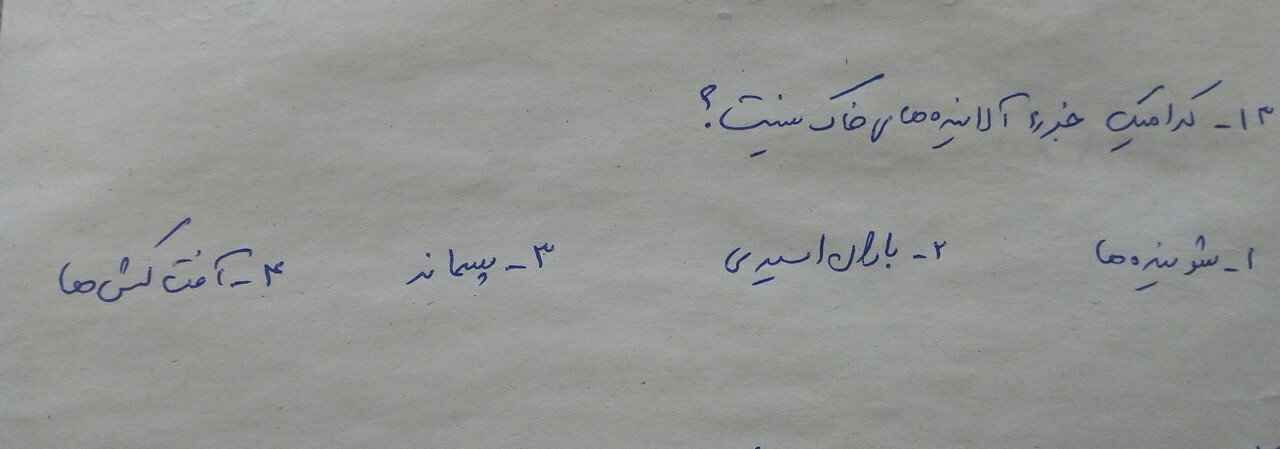 ۱۳- کدامیک جزء آلاینده‌های خاک نیست؟
۱- شوینده‌ها ۲- باران اسیدی ۳- پسماند ۴- آفت کش‌ها